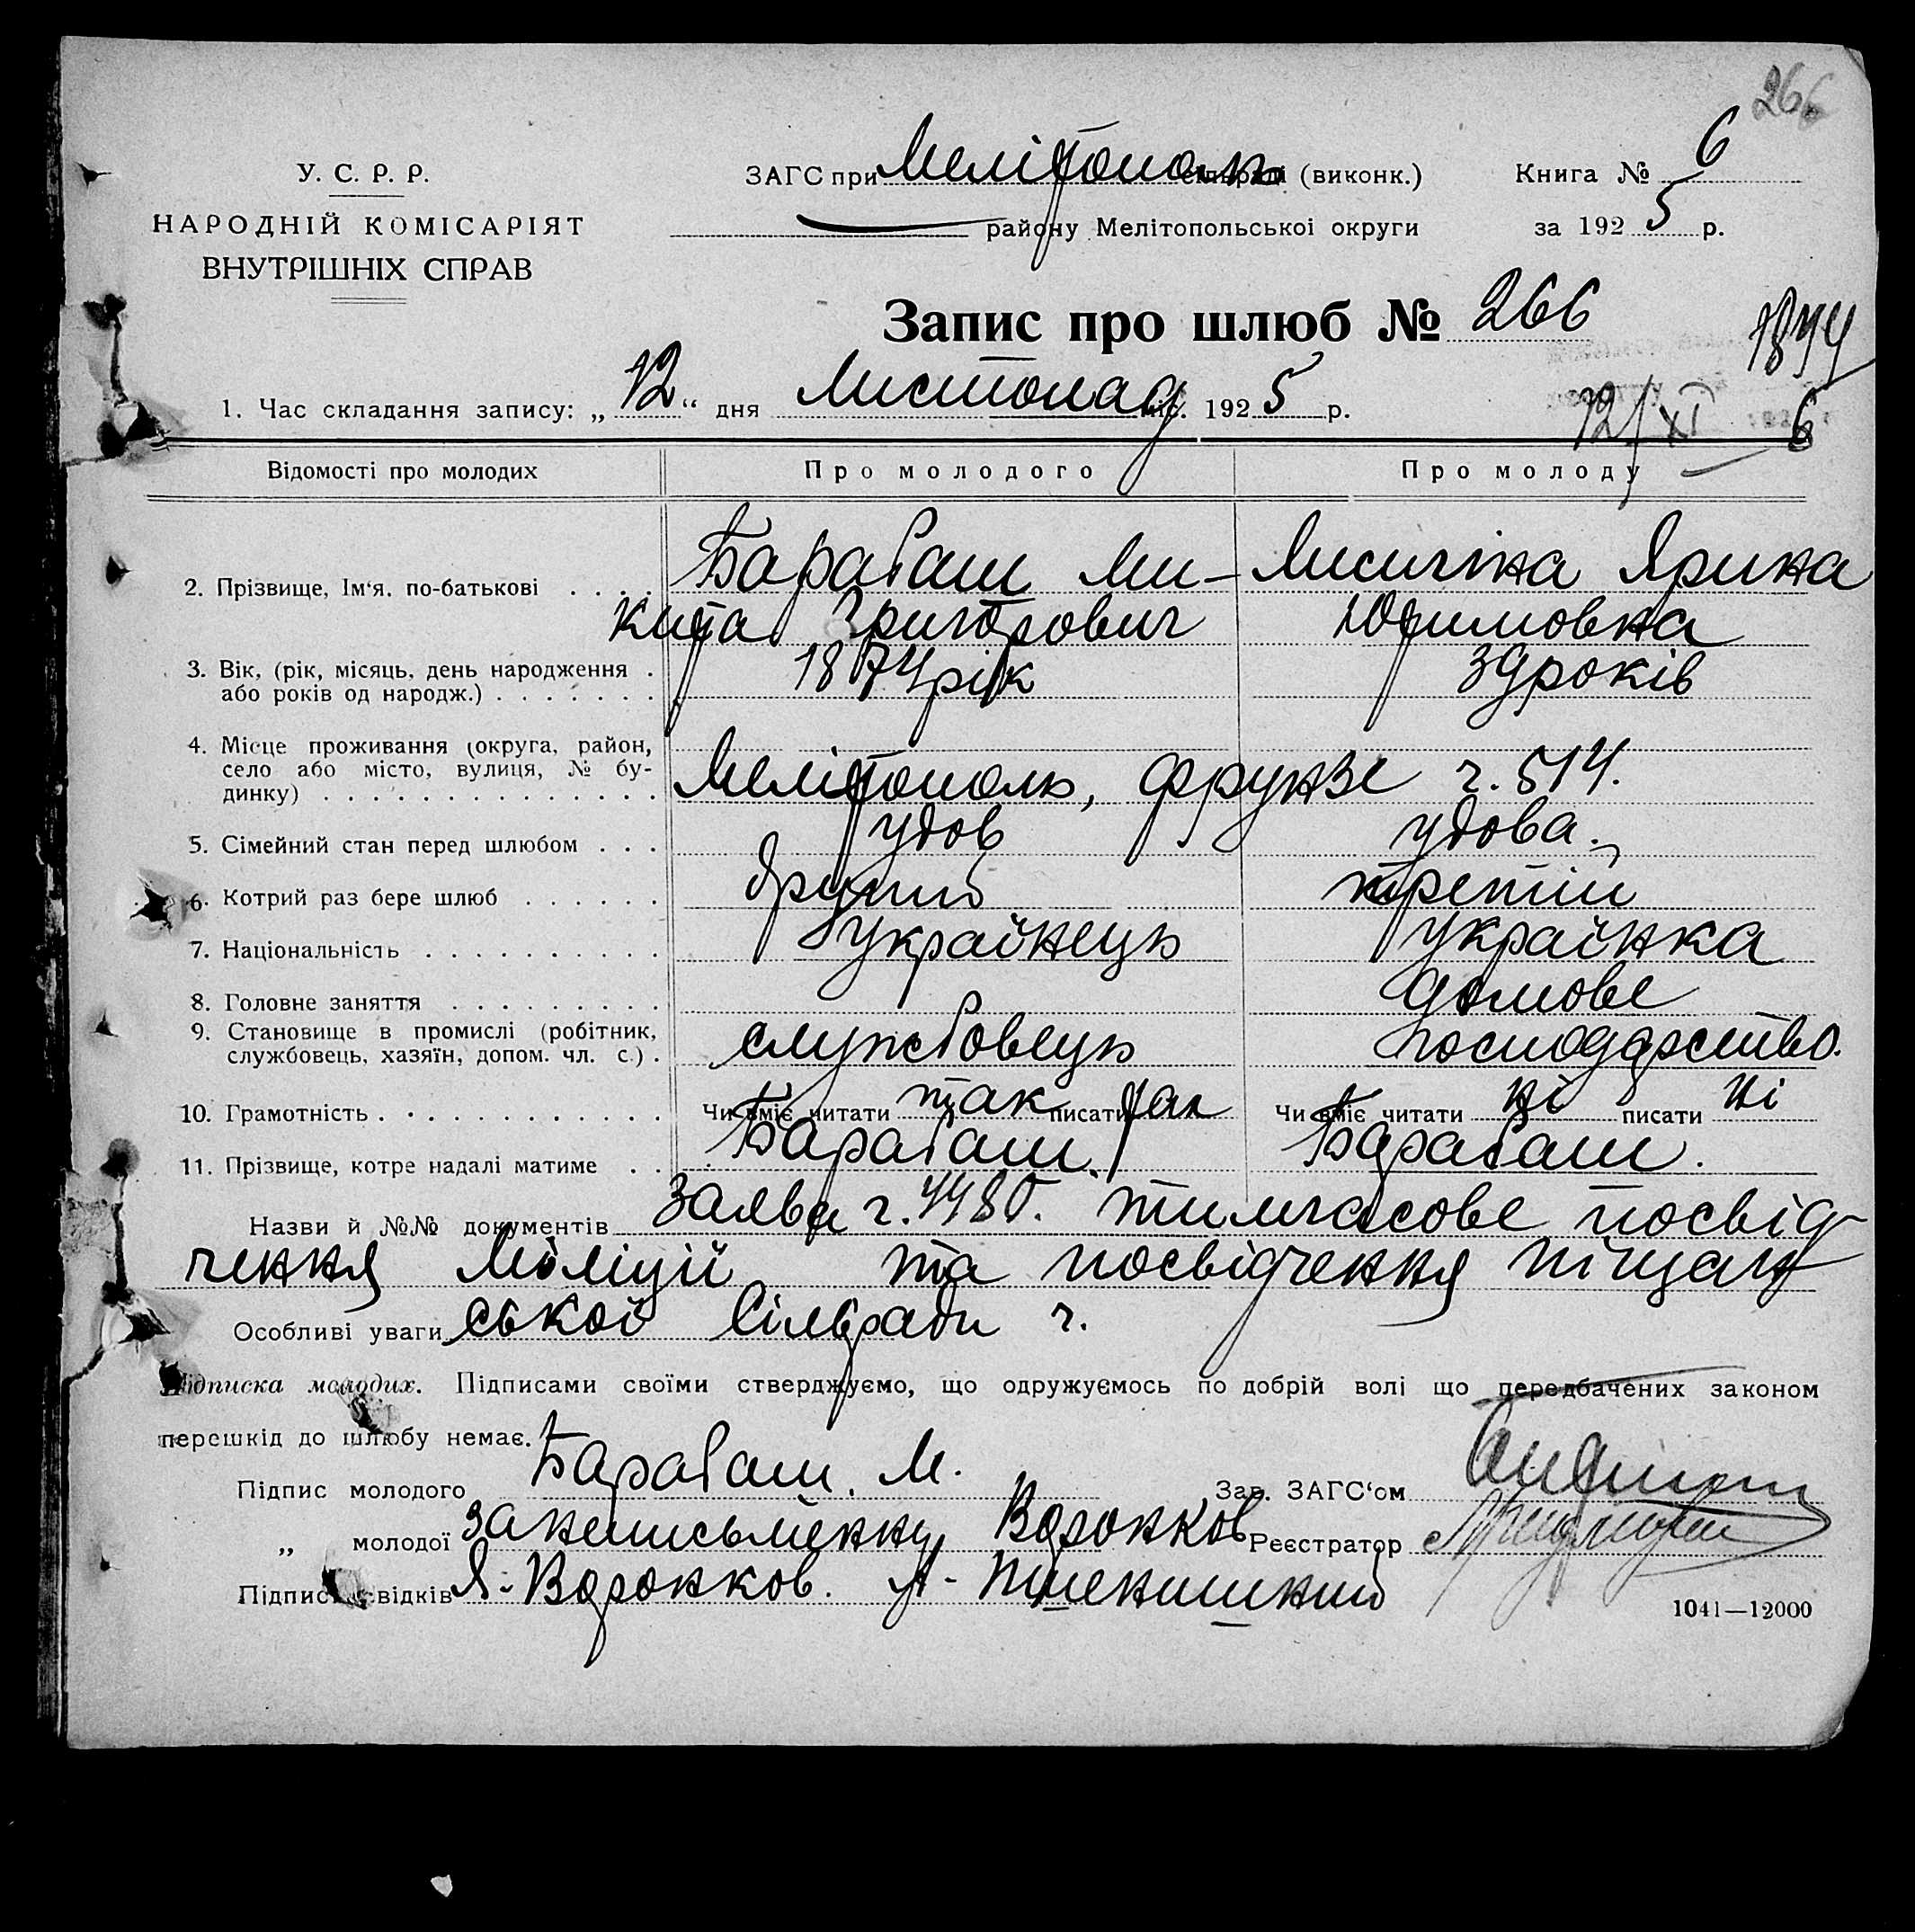 266
У. С. Р. Р.
НАРОДНІЙ КОМІСАРІЯТ
ВНУТРІШНІХ СПРАВ
ЗАГС при Мелітополь сільраді (виконк.)
району Мелітопольськоі округи
Книга № 6
за 1925 р.
Запис про шлюб № 266
1. Час складання запису: „12“ дня Листопад міс. 1925 р.
12/XI 6
Відомості про молодих
Про молодого
Про молоду
2. Прізвище, Ім'я, по-батькові
Барабаш Ми-
кита Григорович
Лисичіна Ярина
Юхимовна
3. Вік, (рік, місяць, день народження
або років од народж.)
1874 рік
39 років
4. Місце проживання (округа, район,
село або місто, вулиця, № бу-
динку)
Мелітополь, Фрунзе ч. 514.
5. Сімейний стан перед шлюбом
удов
удова.
6. Котрий раз бере шлюб
другий
третій
7. Національність
українець
українка
8. Головне заняття
9. Становище в промислі (робітник,
службовець, хазяїн, допом. чл. с.)
службовець
домове
господарство.
10. Грамотність
Чи вміє читати так писати так
Чи вміє читати ні писати ні
11. Прізвище, котре надалі матиме
Барабаш.
Барабаш.
Назви й №№ документів заява ч. 4480. тимчасове посвід-
чення Міліції та посвідчення Піщан
Особливі уваги ської Сільради ч.
Підписка молодих. Підписами своїми стверджуємо, що одружуємось по добрій волі що передбачених законом
перешкід до шлюбу немає.
Підпис молодого Барабаш. М.
Зав. ЗАГС'ом
„ молодої за неписьменну Воронков
Реєстратор
Підпис свідків Я. Воронков. А. Пшенишний
1041—12000